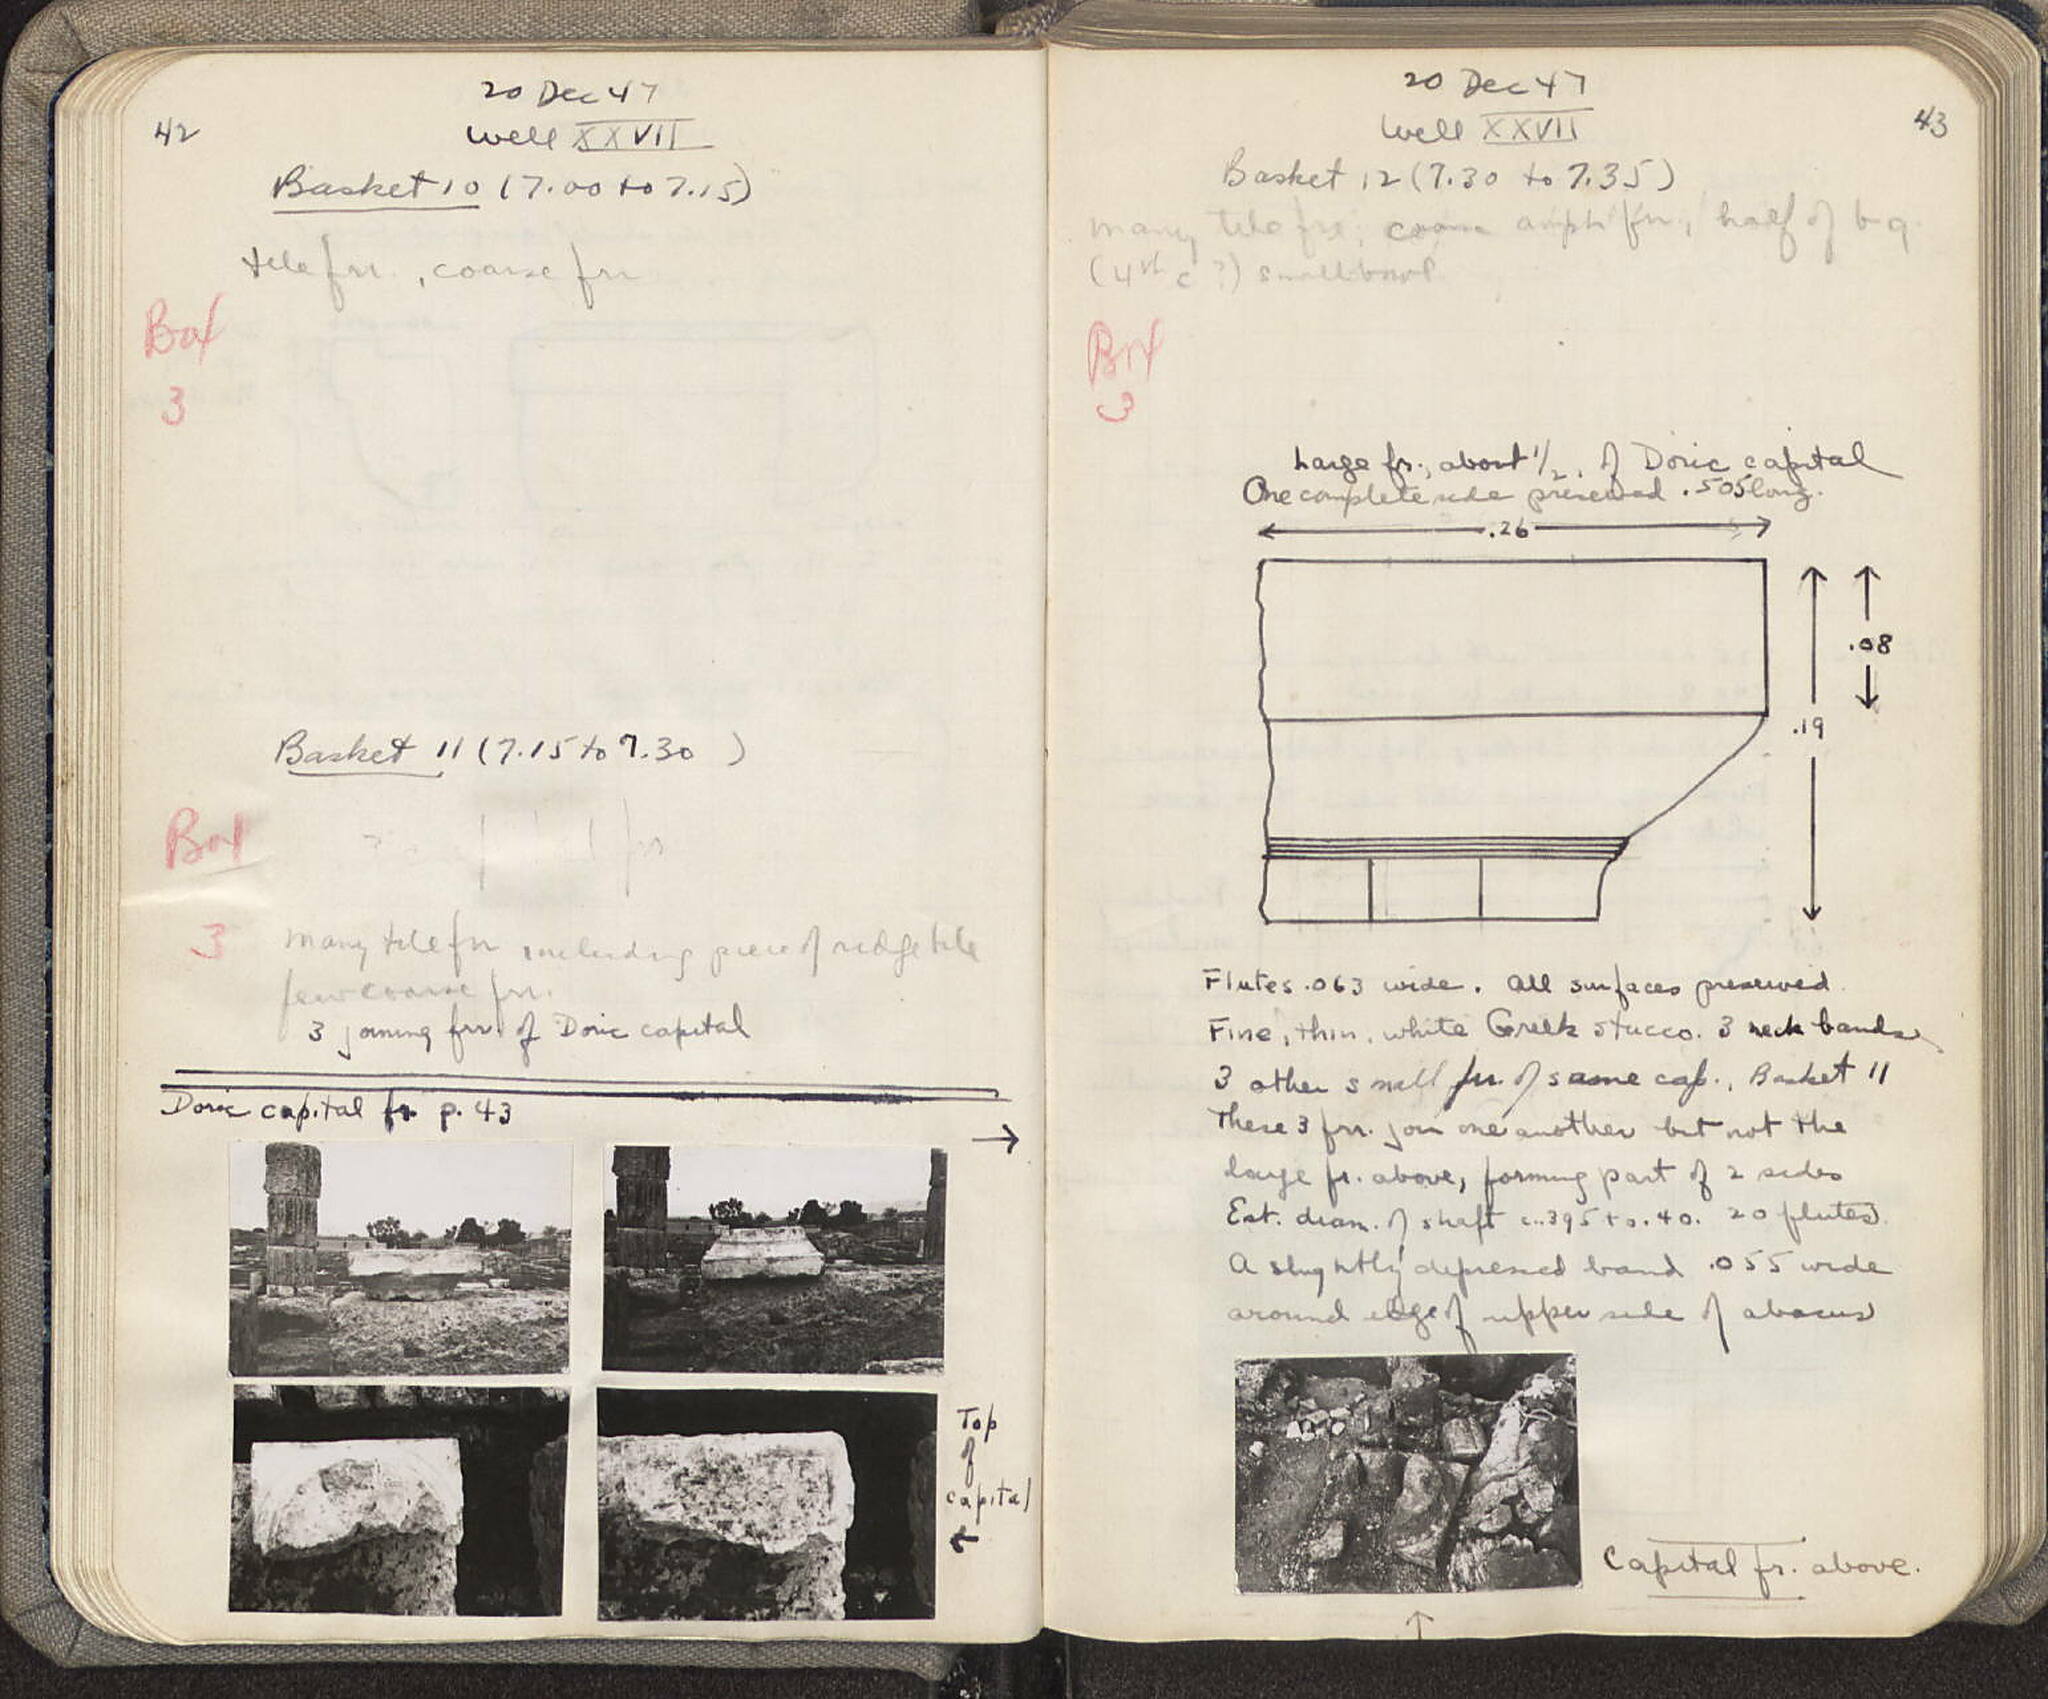 42
20 Dec 47
Well XXVII
Basket 10 (7.00 to 7.15)
tile frr., coarse frr
Box
3
Basket 11 (7.15 to 7.30 )
Box
3
many tile frr including piece of ridge tile
few coarse frr.
3 joining frr. of Doric capital
Doric capital fr. p. 43
→
Top
of
capital
←
20 Dec 47
43
Well XXVII
Basket 12 (7.30 to 7.35)
many tile frr; coarse amph frr; half of b.g.
(4th c ?) small bowl
Box
3
Large fr., about 1/2, of Doric capital
One complete side preserved .505 long.
.26
.08
.19
Flutes .063 wide. All surfaces preserved.
Fine, thin, white Greek stucco. 3 neck bands
3 other small frr. of same cap., Basket 11
These 3 frr. join one another but not the
large fr. above, forming part of 2 sides
Est. diam. of shaft c. .395 to .40. 20 flutes.
A slightly depressed band .055 wide
around edge of upper side of abacus
Capital fr. above.
↑